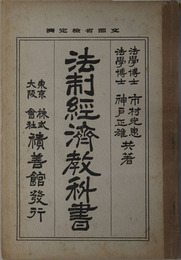 文部省檢定濟
法學博士 市村光惠
法學博士 神戸正雄
共著
法制經濟教科書
東京
大阪
株式
會社
積善館發行